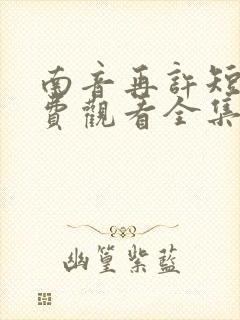 南音再許短
費觀看全集
幽篁紫藍